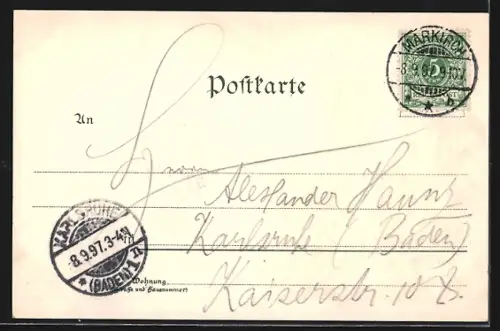 MARKIRCH
-8.9.97.9-10V.
* * b
5
Postkarte
An
Herrn
Alexander Haunz
Karlsruhe (Baden)
Kaiserstr. 10
KARLSRUHE
-8.9.97.3-4N
* (BADEN) 1 n
Wohnung
(Straße und Hausnummer)